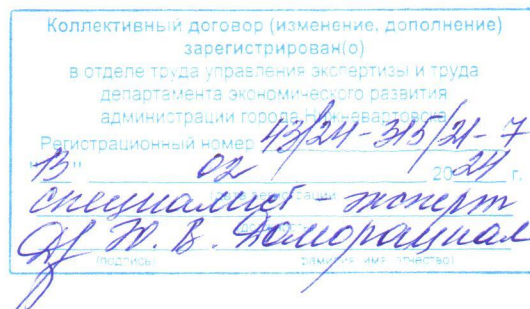 Коллективный договор (изменение, дополнение)
зарегистрирован(о)
в отделе труда управления экспертизы и труда
департамента экономического развития
администрации города Нижневартовска
Регистрационный номер 43/24-315/21-7
"13" 02 2024 г.
(дата регистрации)
специалист-эксперт
Ю. В. Доморацкая
(подпись) (фамилия, имя, отчество)